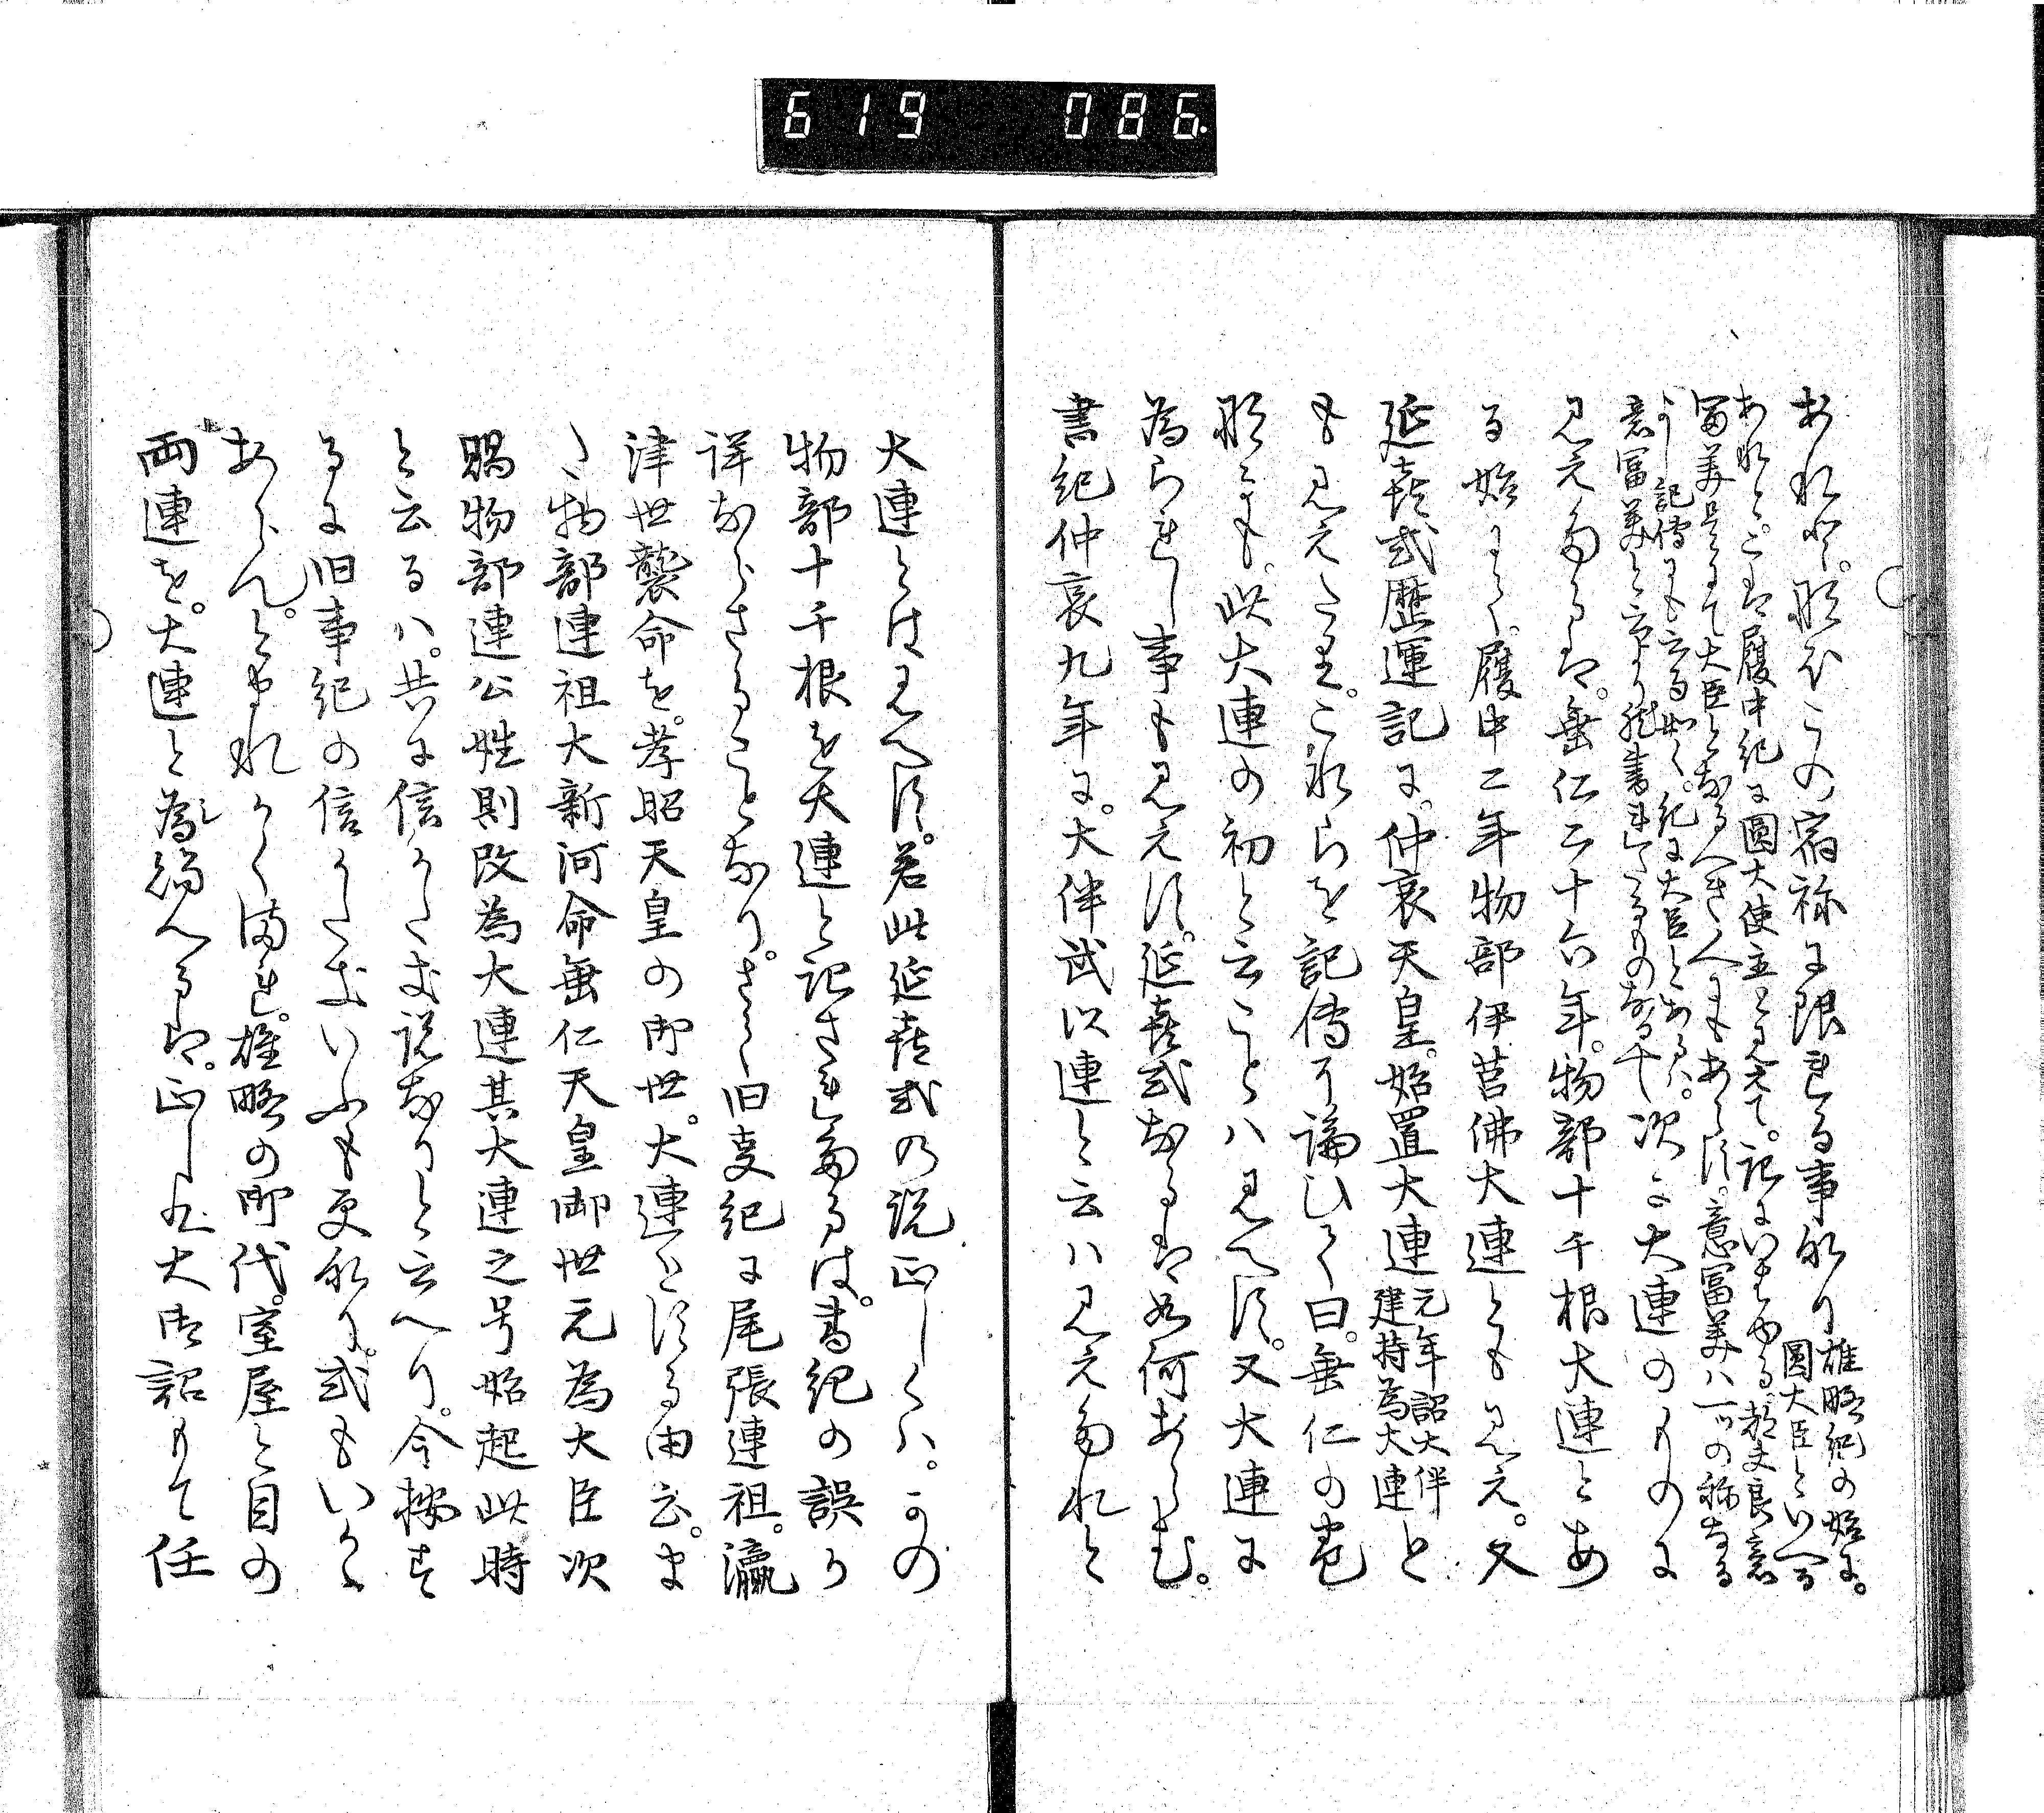 619 086.
あれど。那ほこの宿祢に限れる事那り雄略紀の始に。
圓大臣といへる
あれど。こは履中紀に圓大使主と見えて。記にいはゆる都夫良意
富美是にて大臣となるべき人にもあらず。意富美ハ一ツの称なる
よし記傳にも云る如く。紀に大臣とあるハ。
意富美と云より然書れたるものなるべし
次に大連のものに
見え多るは。垂仁二十六年。物部十千根大連とあ
る始にて。履中二年物部伊莒佛大連とも見え。又
延喜式歴運記に。仲哀天皇。始置大連元年詔大伴建持為大連と
も見えたり。これらを記傳に論ひて曰。垂仁の巻
那るも。此大連の初と云ことハ見へず。又大連に
為られし事も見えず。延喜式なるは如何あらむ。
書紀仲哀九年に。大伴武以連と云ハ見え多れど
大連とは見へず。若此延喜式の説正しくハ。かの
物部十千根を大連と記され多るは。書紀の誤か
詳ならざることなり。さて旧事紀に尾張連祖。瀛
津世襲命を。孝昭天皇の御世。大連とする由云。ま
た物部連祖大新河命垂仁天皇御世元為大臣次
賜物部連公姓則改為大連其大連之号始起此時
と云るハ。共に信がたき説なりと云へり。今按ず
るに旧事紀の信がたきいふも更那り。式もいかゞ
あらん。とまれかくまれ。雄略の御代。室屋と目の
両連を。大連と為給へるは。正しき大御詔もて任